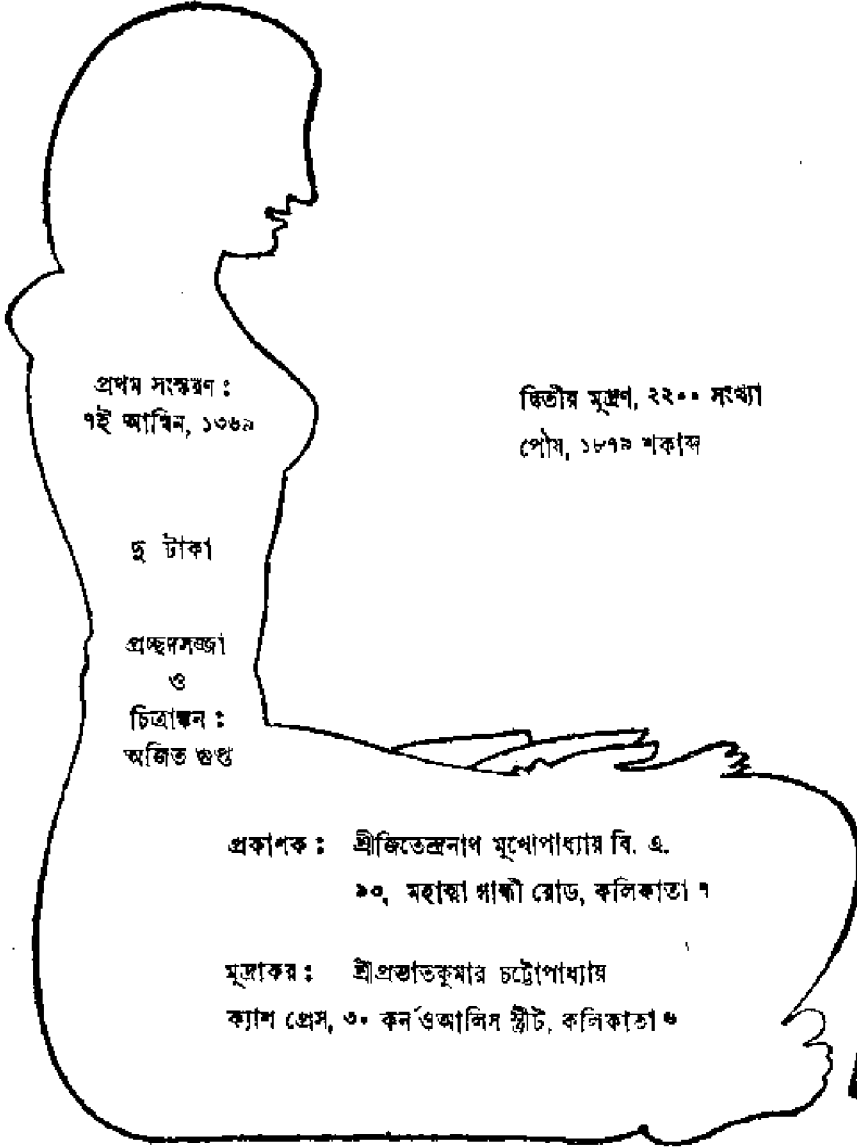 প্রথম সংস্করণ :
৭ই আশ্বিন, ১৩৬৯
দ্বিতীয় মুদ্রণ, ২২০০ সংখ্যা
পৌষ, ১৮৭৯ শকাব্দ
দু টাকা
প্রচ্ছদসজ্জা
ও
চিত্রাঙ্কন :
অজিত গুপ্ত
প্রকাশক : শ্রীজিতেন্দ্রনাথ মুখোপাধ্যায় বি. এ.
৯০, মহাত্মা গান্ধী রোড, কলিকাতা ৭
মুদ্রাকর : শ্রীপ্রভাতকুমার চট্টোপাধ্যায়
ক্যাশ প্রেস, ৩০ কর্নওআলিস স্ট্রীট, কলিকাতা ৬